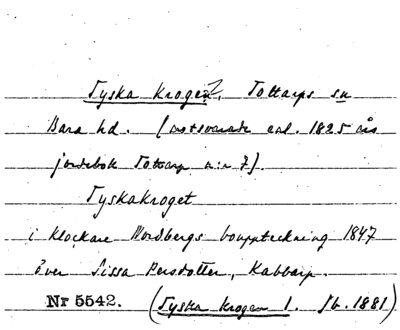 Tyska krogen, Tottarps sn
Bara hd. (motsvarade enl. 1825 års
jordebok Tottarp n:r 7).
Tyskakroget
i klockare Nordbergs bouppteckning 1847
över Sissa Persdotter, Kabbarp.
Nr 5542. (Tyska krogen 1. Jb. 1881)